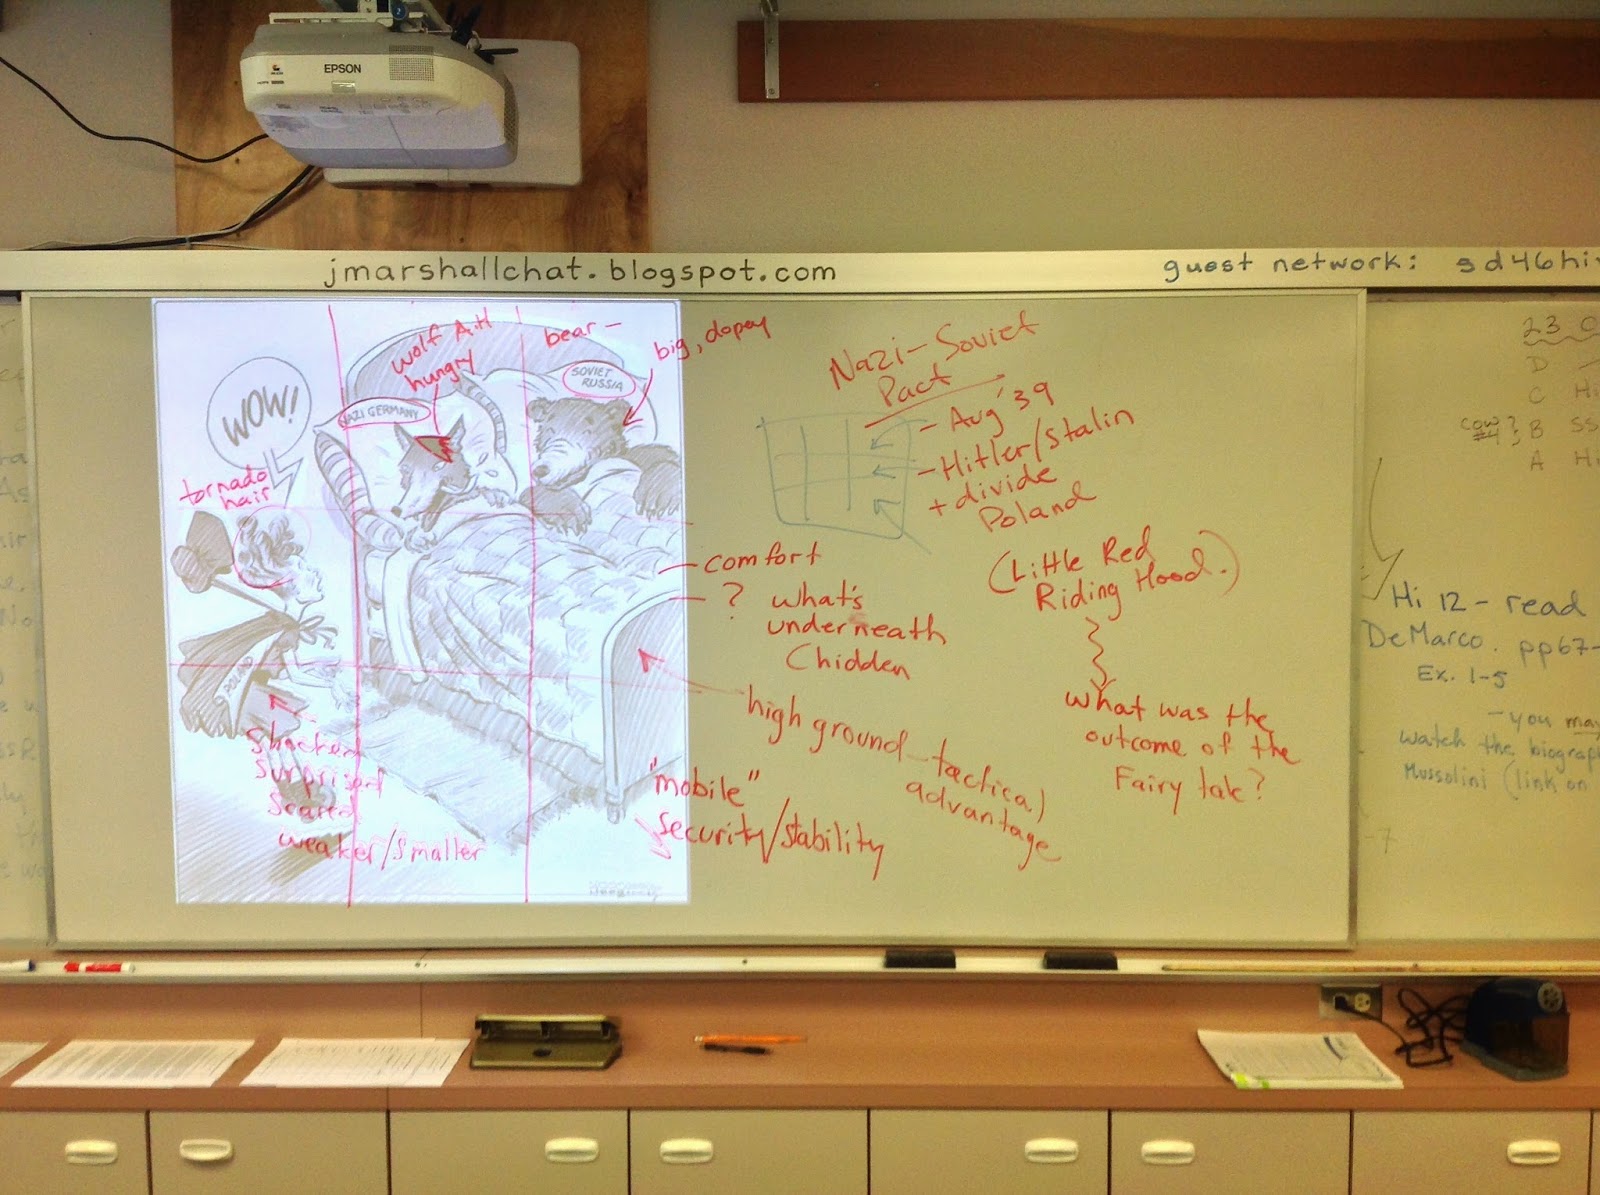 EPSON
jmarshallchat.blogspot.com
guest network: sd46hi
WOW!
NAZI GERMANY
SOVIET
RUSSIA
POLAND
wolf A.H
hungry
bear –
big, dopey
tornado
hair
Shocked
Surprised
Scared
weaker/smaller
Nazi-Soviet
Pact
- Aug '39
- Hitler/Stalin
+ divide
Poland
(Little Red
Riding Hood.)
what was the
outcome of the
Fairy tale?
- comfort
- ? what's
underneath
(hidden
high ground - tactical
advantage
"mobile"
security/stability
23 O
D
C Hi
B SS
A Hi
Hi 12 - read
DeMarco. pp67-
Ex. 1-5
- you may
watch the biograp
Mussolini (link on
-7